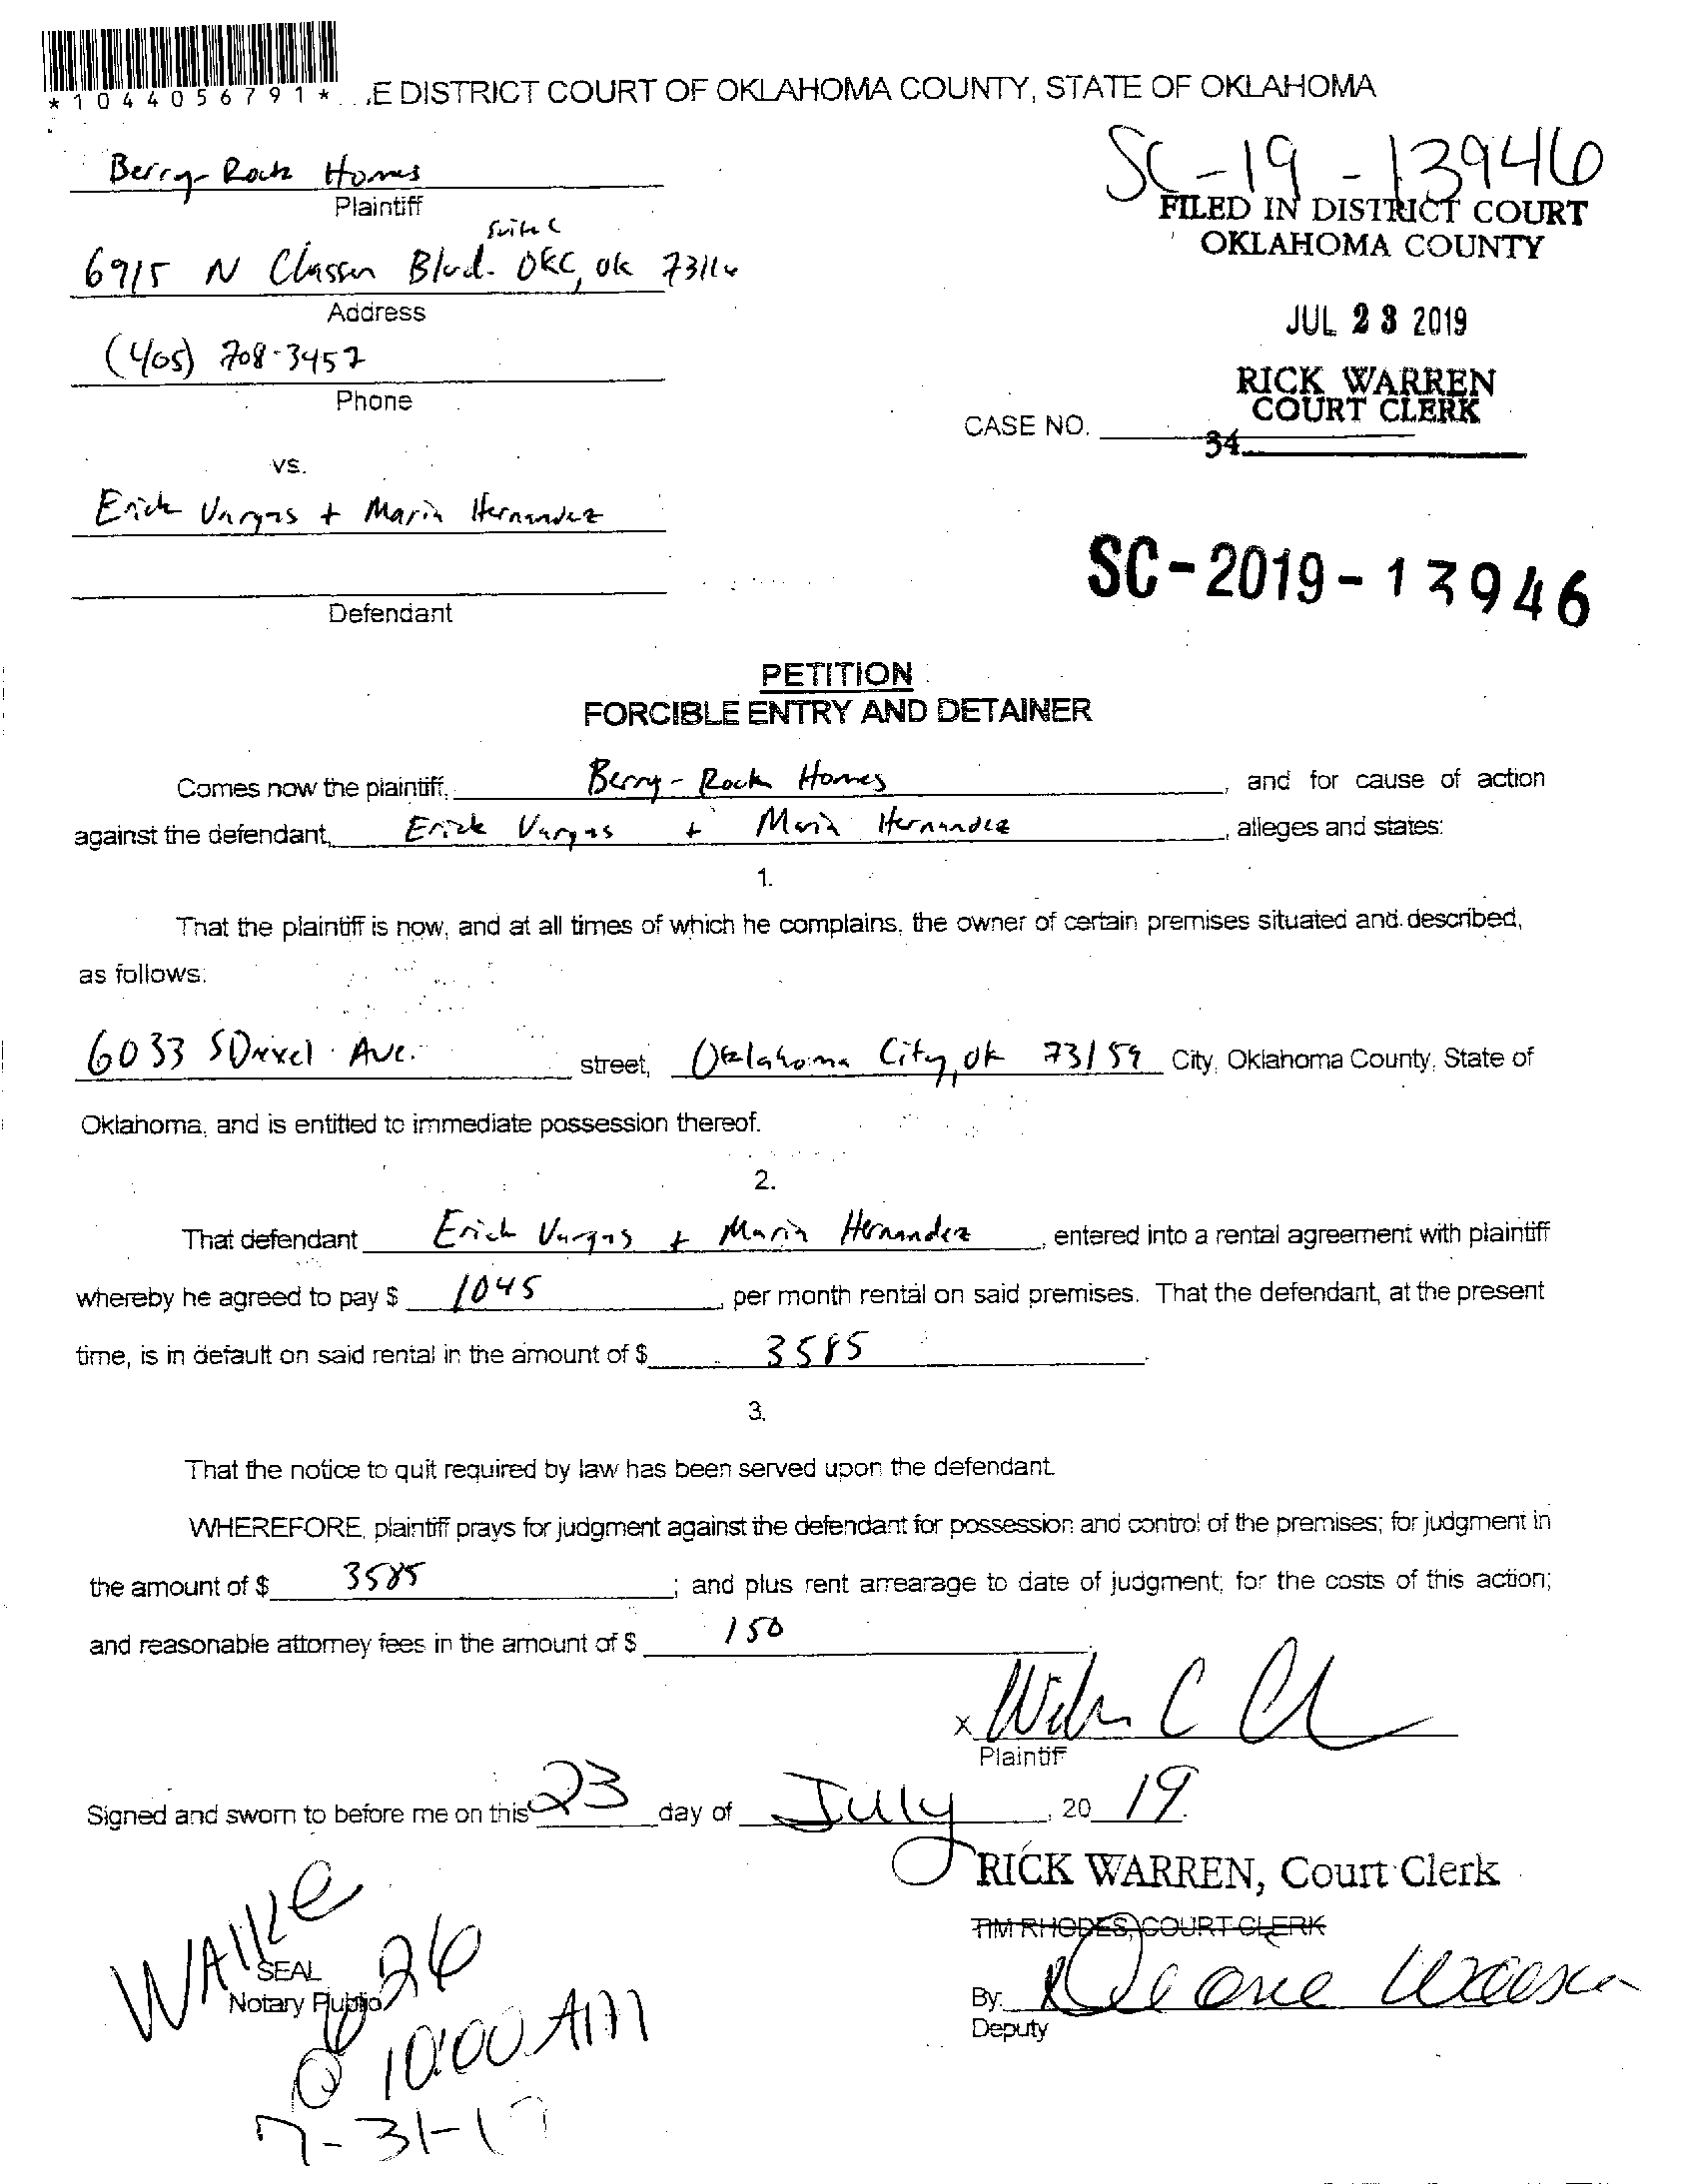 *1044056791* .E DISTRICT COURT OF OKLAHOMA COUNTY, STATE OF OKLAHOMA
SC-19-13946
Berry-Rock Homes
Plaintiff
FILED IN DISTRICT COURT
OKLAHOMA COUNTY
Suite C
6915 N Classen Blvd. OKC, OK 73116
Address
JUL 23 2019
(405) 708-3457
Phone
RICK WARREN
COURT CLERK
CASE NO.
34
vs.
Erick Vargas + Maria Hernandez
SC-2019-13946
Defendant
PETITION
FORCIBLE ENTRY AND DETAINER
Comes now the plaintiff, Berry-Rock Homes, and for cause of action
against the defendant, Erick Vargas + Maria Hernandez, alleges and states:
1.
That the plaintiff is now, and at all times of which he complains, the owner of certain premises situated and described,
as follows:
6033 S Drexel Ave. street, Oklahoma City, OK 73159 City, Oklahoma County, State of
Oklahoma, and is entitled to immediate possession thereof.
2.
That defendant Erick Vargas + Maria Hernandez, entered into a rental agreement with plaintiff
whereby he agreed to pay $ 1045, per month rental on said premises. That the defendant, at the present
time, is in default on said rental in the amount of $ 3585.
3.
That the notice to quit required by law has been served upon the defendant.
WHEREFORE, plaintiff prays for judgment against the defendant for possession and control of the premises; for judgment in
the amount of $ 3585; and plus rent arrearage to date of judgment; for the costs of this action;
and reasonable attorney fees in the amount of $ 150
x
Plaintiff
Signed and sworn to before me on this 23 day of July, 20 19.
RICK WARREN, Court Clerk
TIM RHODES, COURT CLERK
WAlke
SEAL
Notary Public
By
Deputy
626
@ 10:00 AM
7-31-19